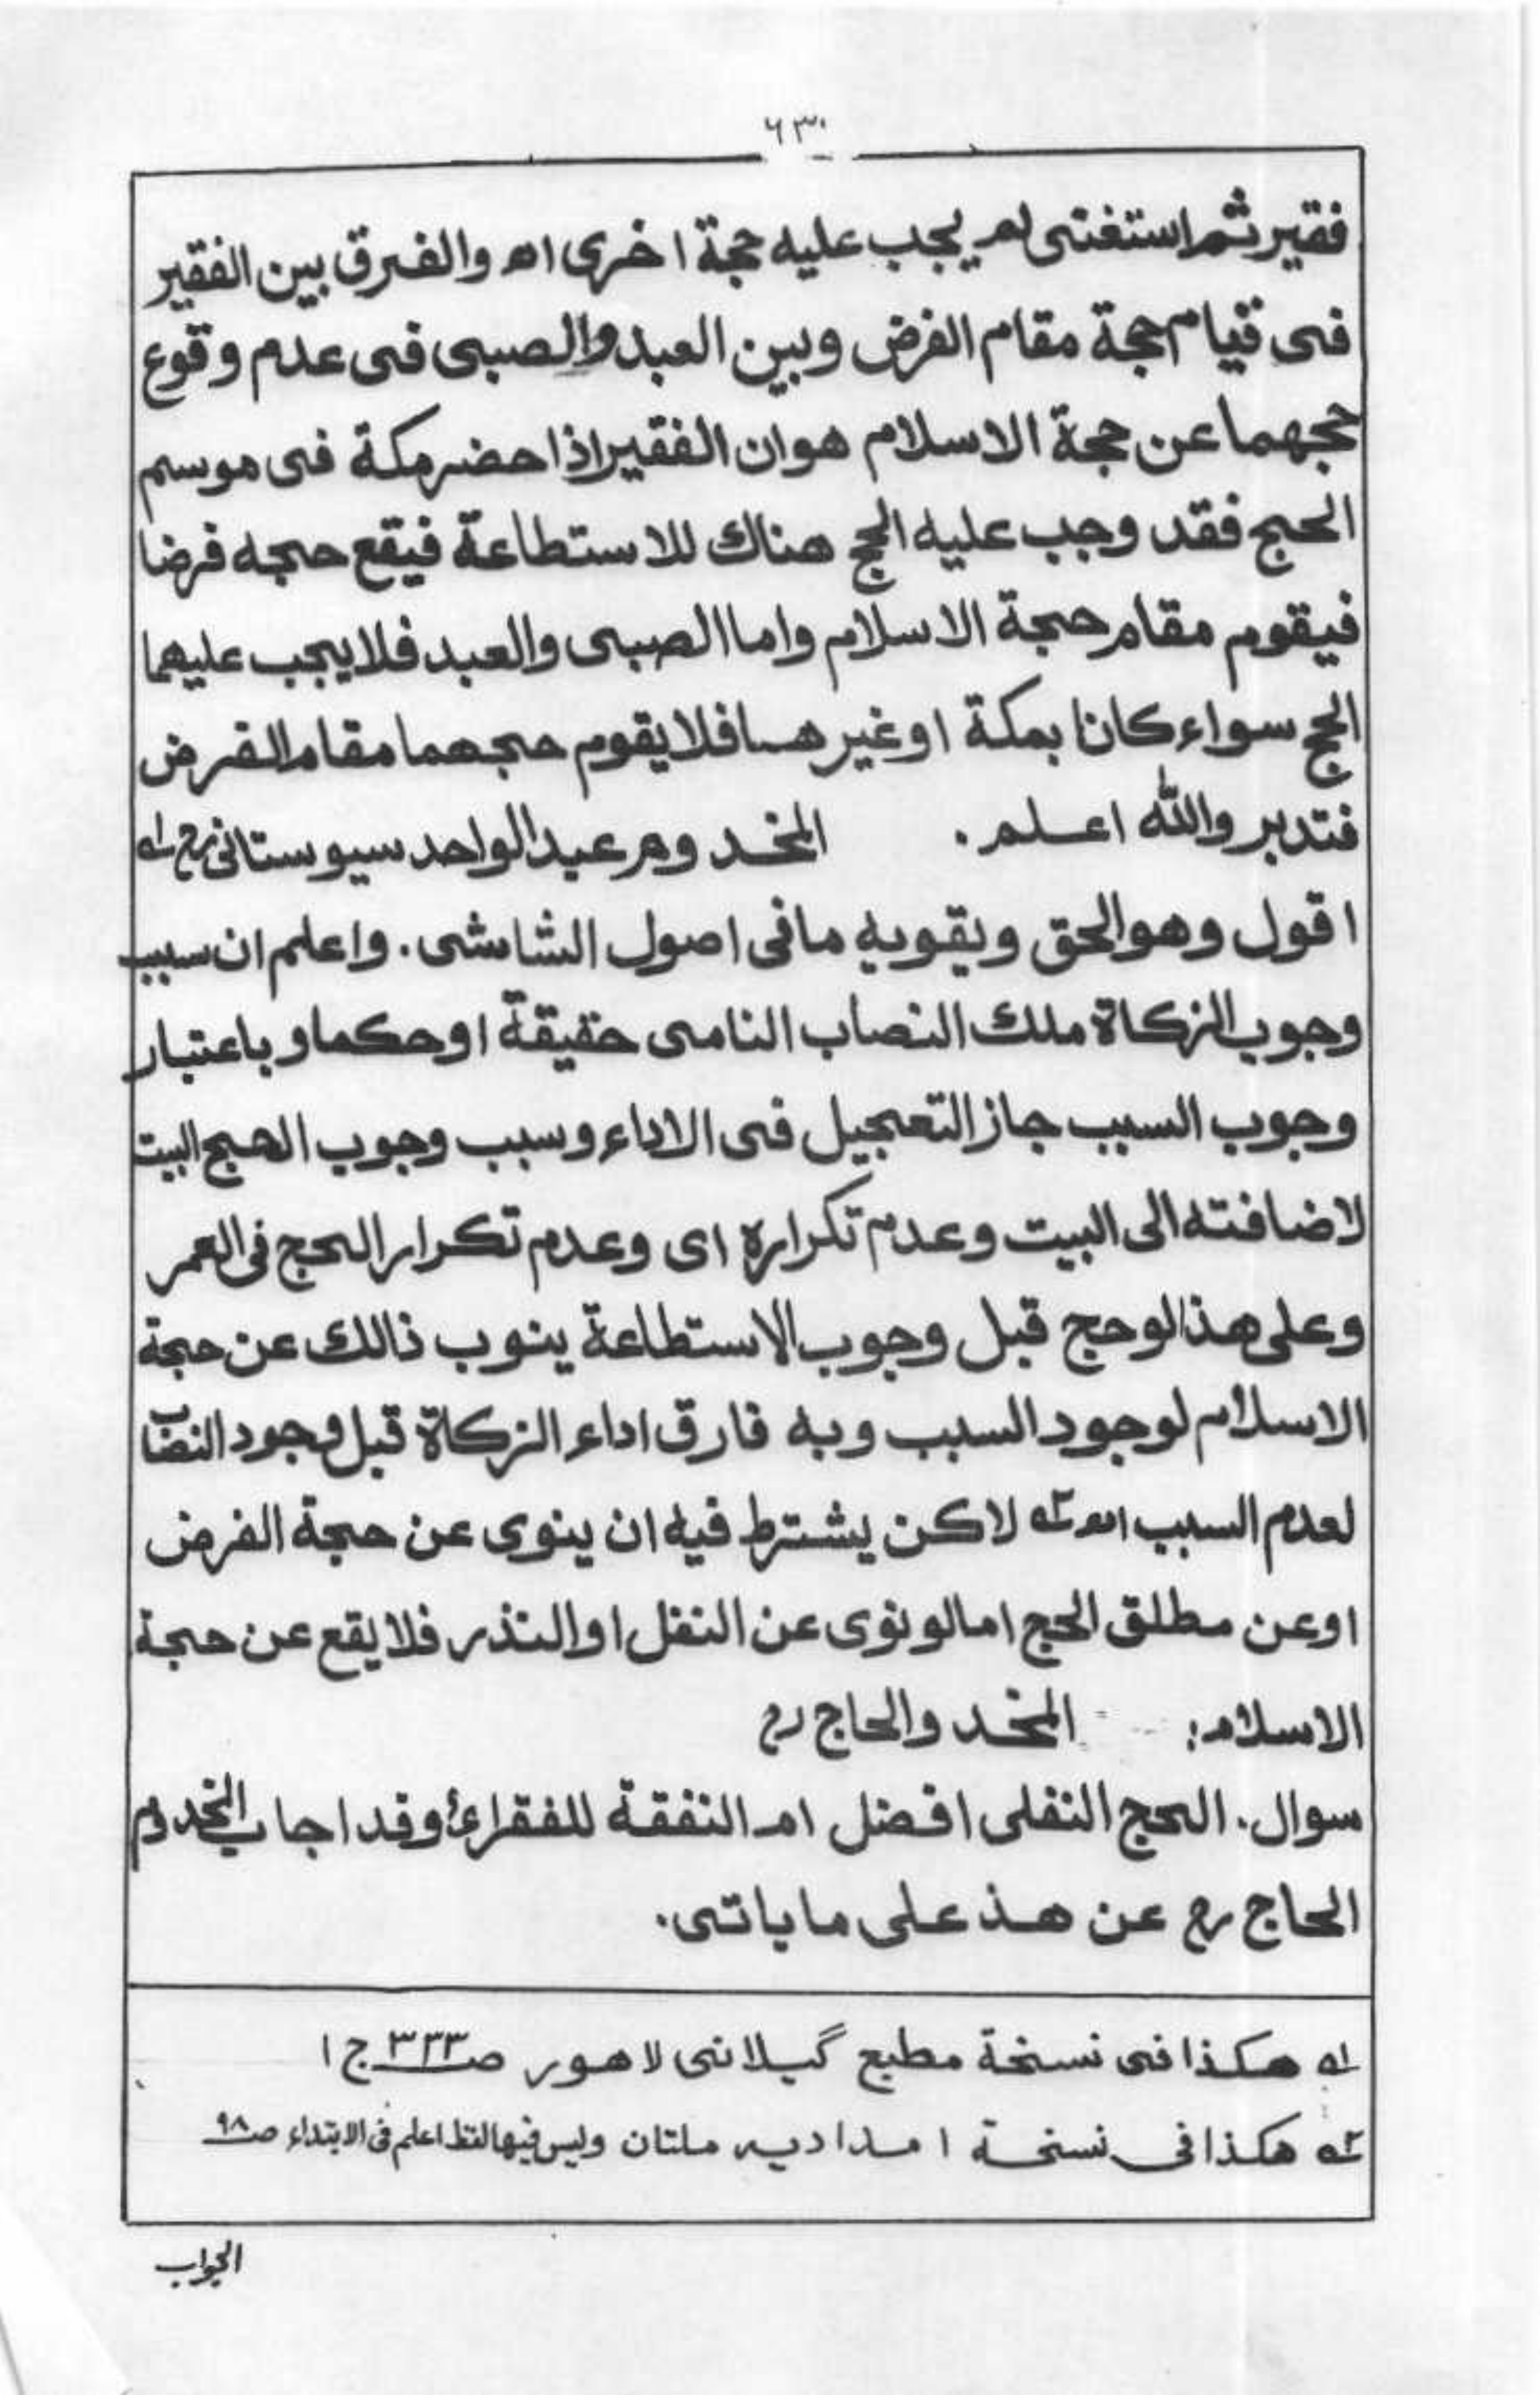 ٦٣٠
فقير ثم استغنى لم يجب عليه حجة اخرى اه والفرق بين الفقير
فى قيام حجة مقام الفرض وبين العبد والصبى فى عدم وقوع
حجهما عن حجة الاسلام هو ان الفقير اذا حضر مكة فى موسم
الحج فقد وجب عليه الحج هناك للاستطاعة فيقع حجه فرضا
فيقوم مقام حجة الاسلام واما الصبى والعبد فلا يجب عليهما
الحج سواء كانا بمكة او غيرهما فلا يقوم حجهما مقام الفرض
فتدبر والله اعلم. المخدوم عبد الواحد سيوستانى رح ١ـه
اقول وهو الحق ويقويه ما فى اصول الشاشى. واعلم ان سبب
وجوب الزكاة ملك النصاب النامى حقيقة او حكما و باعتبار
وجوب السبب جاز التعجيل فى الاداء وسبب وجوب الحج البيت
لاضافته الى البيت وعدم تكراره اى وعدم تكرار الحج فى العمر
وعلى هذا لو حج قبل وجوب الاستطاعة ينوب ذالك عن حجة
الاسلام لوجود السبب وبه فارق اداء الزكاة قبل وجود النصاب
لعدم السبب اه ٢ـه لاكن يشترط فيه ان ينوى عن حجة الفرض
او عن مطلق الحج اما لو نوى عن النفل او النذر فلا يقع عن حجة
الاسلام: المخد والحاج رح
سوال. الحج النفلى افضل ام النفقة للفقراء وقد اجاب المخدوم
الحاج رح عن هذ على ما ياتى.
١ـه هكذا فى نسخة مطبع گيلانى لاهور صـ ٣٣٣ ج ١
٢ـه هكذا فى نسخة امداديه ملتان وليس فيها لفظ اعلم فى الابتداء صـ ٩٨
الجواب